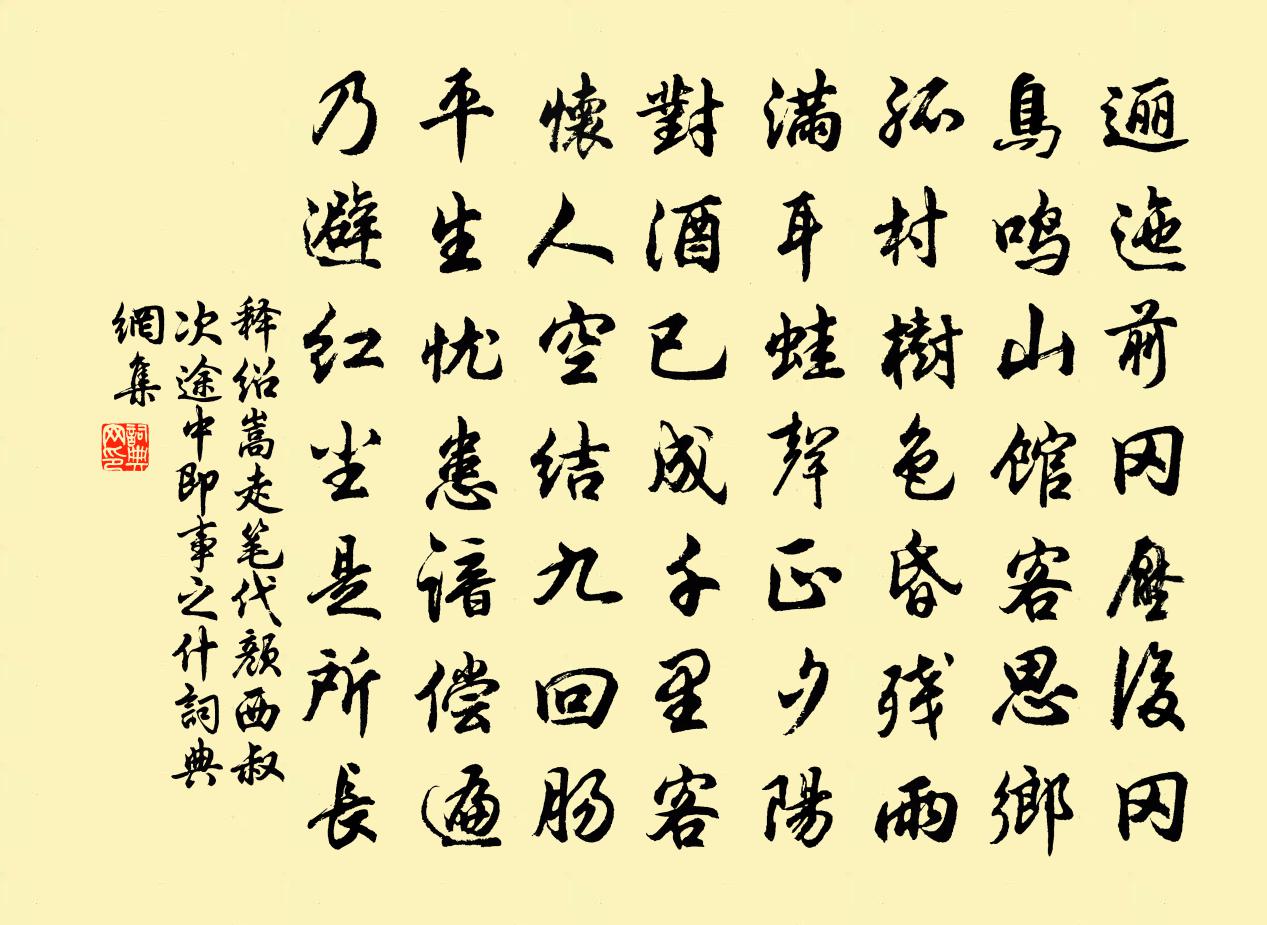 逦迤前冈压後冈
鳥鸣山馆客思鄉
孤村樹色昏残雨
满耳蛙聲正夕陽
對酒已成千里客
懷人空结九回肠
平生忧患谙偿遍
乃避红尘是所長
释绍嵩走笔代颜西叔
次途中即事之什詞典
網集
詞典网印